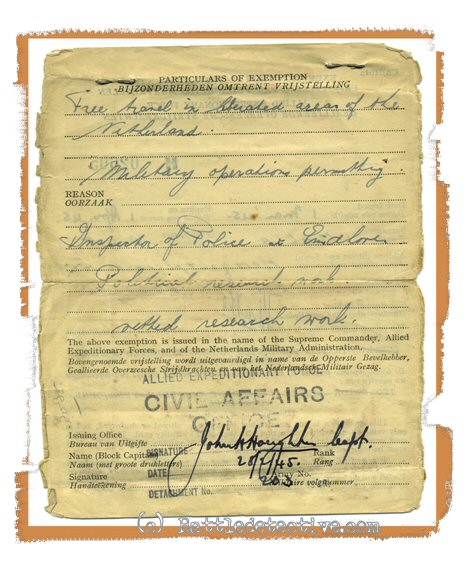 PARTICULARS OF EXEMPTION
BIJZONDERHEDEN OMTRENT VRIJSTELLING
Free travel in liberated areas of the
Netherland.
Military operations permitting.
REASON
OORZAAK
Inspector of Police
Political research work.
research work.
The above exemption is issued in the name of the Supreme Commander, Allied
Expeditionary Forces, and of the Netherlands Military Administration.
Bovengenoemde vrijstelling wordt uitgevaardigd in name van de Opperste Bevelhebber,
Geallieerde Overzeesche Strijdkrachten en van het Nederlandsch Militair Gezag.
ALLIED EXPEDITIONARY FORCE
CIVIL AFFAIRS
OFFICE
Issuing Office
Bureau van Uitgifte
Capt.
Name (Block Capitals)
SIGNATURE
Rank
Naam (met groote drukletters)
DATE
45.
Rang
Signature
Army No.
Handteekening
203
Militaire volgnummer
DETACHMENT No.
(c) Battledetective.com